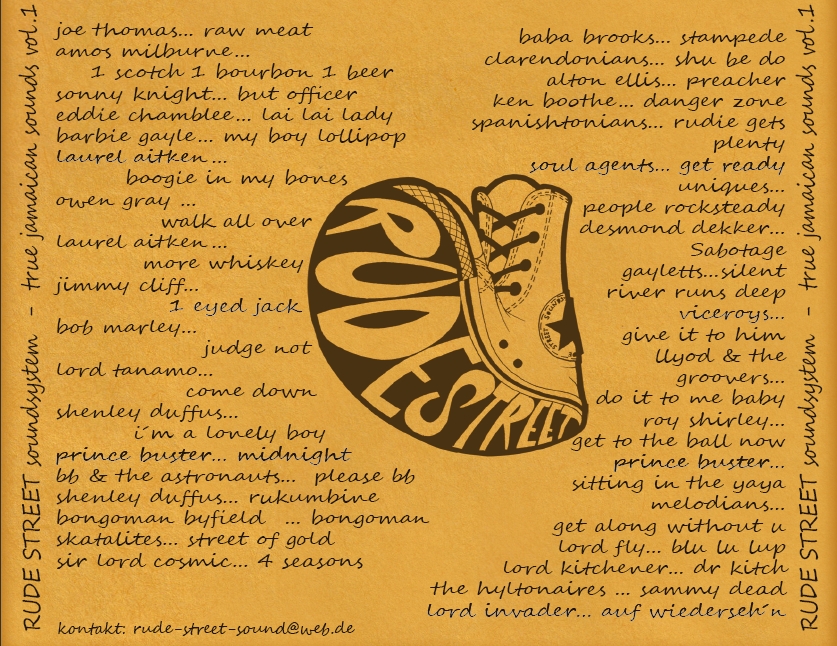 RUDE STREET soundsystem - true jamaican sounds vol.1
joe thomas... raw meat
amos milburne...
1 scotch 1 bourbon 1 beer
sonny knight... but officer
eddie chamblee... lai lai lady
barbie gayle... my boy lollipop
laurel aitken...
boogie in my bones
owen gray ...
walk all over
laurel aitken...
more whiskey
jimmy cliff...
1 eyed jack
bob marley...
judge not
lord tanamo...
come down
shenley duffus...
i´m a lonely boy
prince buster... midnight
bb & the astronauts... please bb
shenley duffus... rukumbine
bongoman byfield ... bongoman
skatalites... street of gold
sir lord cosmic... 4 seasons
kontakt: rude-street-sound@web.de
RUDE
STREET
baba brooks... stampede
clarendonians... shu be do
alton ellis... preacher
ken boothe... danger zone
spanishtonians... rudie gets
plenty
soul agents... get ready
uniques...
people rocksteady
desmond dekker...
Sabotage
gayletts...silent
river runs deep
viceroys...
give it to him
llyod & the
groovers...
do it to me baby
roy shirley...
get to the ball now
prince buster...
sitting in the yaya
melodians...
get along without u
lord fly... blu lu lup
lord kitchener... dr kitch
the hyltonaires ... sammy dead
lord invader... auf wiederseh´n
RUDE STREET soundsystem - true jamaican sounds vol.1